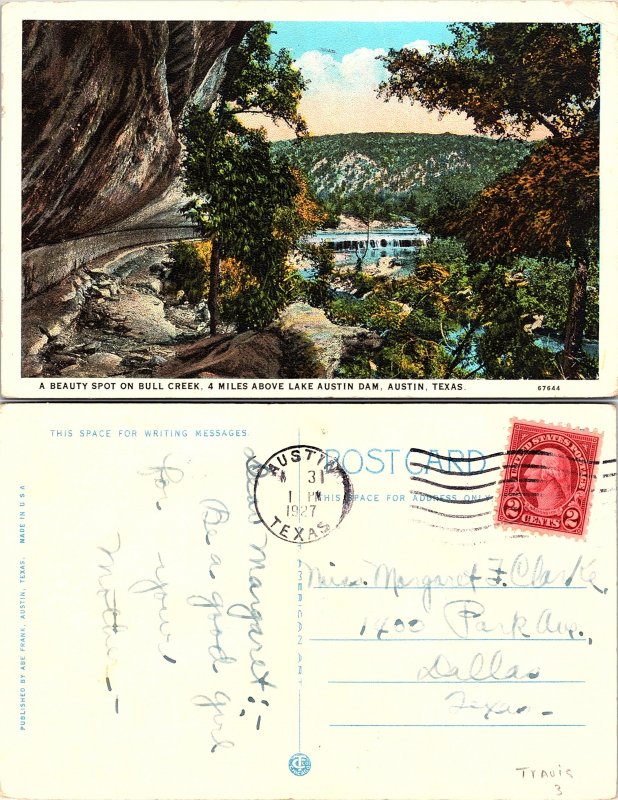 A BEAUTY SPOT ON BULL CREEK, 4 MILES ABOVE LAKE AUSTIN DAM, AUSTIN, TEXAS.
67644
THIS SPACE FOR WRITING MESSAGES
POST CARD
THIS SPACE FOR ADDRESS ONLY
AUSTIN
31
1 PM
1927
TEXAS
UNITED STATES POSTAGE
2 CENTS 2
PUBLISHED BY ABE FRANK, AUSTIN, TEXAS. MADE IN U S A
Dear Margaret:-
Be a good girl
for
your
Mother-
Miss Margaret F. Clarke,
1400 Park Ave.,
Dallas
Texas-
TRAVIS
3